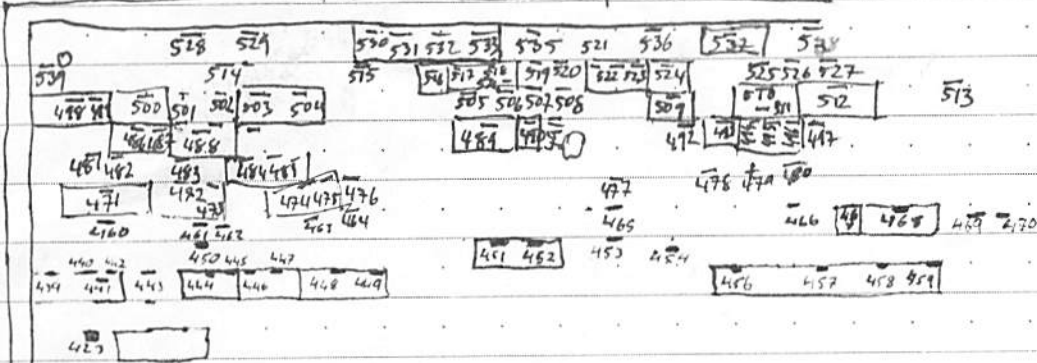 528 529 530 531 532 533 535 521 536 537
539 514 515 517 519 520 522 523 524 525 526 527
498 500 501 502 503 504 505 506 507 508 509 512 513
488 489 492 497
481 482 483 484 485
471 482 473 474 475 476 477 478 479 480
460 461 462 463 464 465 466 468 469 470
450 451 452 453 454
440 442 445 447
439 441 443 444 446 448 449 456 457 458 459
423